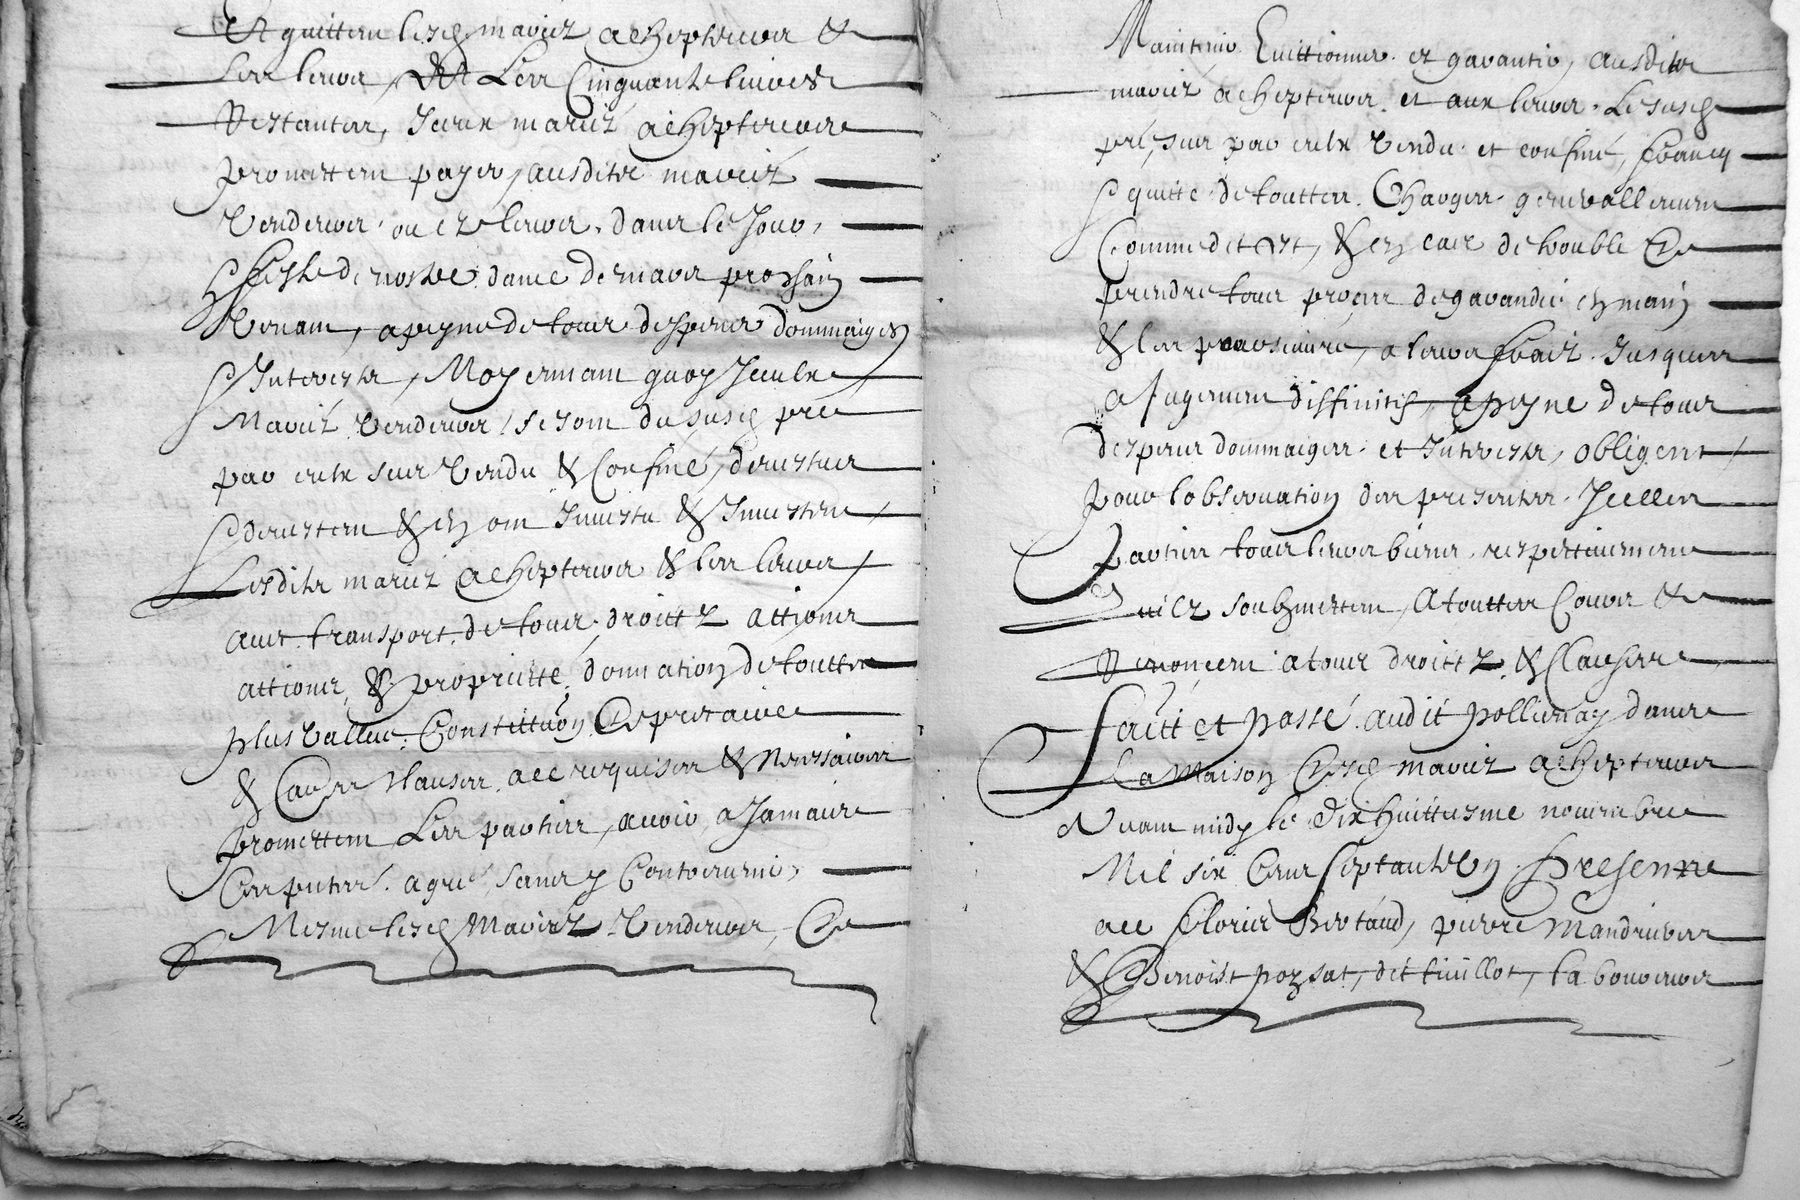 Et quittent lesd mariez achepteurs &
les leurs, Et Les Cinquante livres
Restantes, Iceux mariez achepteurs
promettent payer, ausdits mariez
Vendeurs ou ez leurs, dans le Jour,
& feste de nostre dame de mars prochain
Venant, a peyne de tous despens dommaiges
& Interests, Moyennant quoy Iceulx
Mariez Vendeurs, se sont du susd pré
par eulx sus Vendu & Confiné, devestus
& devestent & en ont Investu & Investent
Lesdits mariez achepteurs & les leurs
avec transport de tous droictz actions
actions, & proprietté, donnation de touttes
plus Vallue, Constitution De precaire
& Autres Clauses, ace requises & Necessaires
promettent Les parties, avoir, a Jamais
Ces putes agre, sans y Contrevenir,
Mesme lesd Mariez Vendeurs, De
Maintenir Evictionner et garantir, ausdits
mariez achepteurs et aux leurs Le susd
pré, sus par eulx Vendu et confiné, franc
& quitte de touttes Charges generallement
Comme dit est, & en cas de trouble De
prendre tous proces de garandie en main
& les poursuivre, a leurs fraiz Jusques
a Jugement diffinitif, a peyne de tous
despens dommaiges et Interests, obligent
pour l'observation des presentes Icelles
parties tous leurs biens respectivement
Quilz soubzmettent, A touttes Cours &
Renoncent a tous droictz & Clauses
faict et passé audit Pollionay dans
La Maison Desd mariez achepteurs
Avant midy le Dix huittiesme novembre
Mil six Cens septante Un, Presents
ace Floris Bertaud, pierre Mandrivers
& Benoist pozsat, dit tiullot, laboureurs